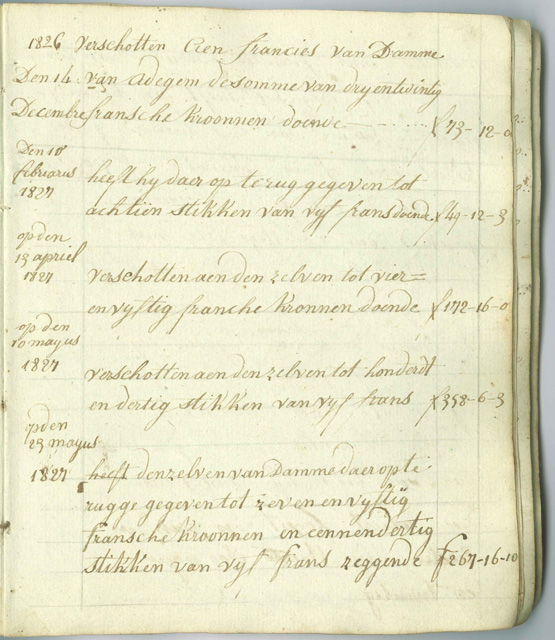 1826 verschotten Aen francies van Damme
Den 14 van adegem de somme van dryentwintig
Decembre fransche kroonnen doende f 73-12-0
Den 10
februarus
1827
heeft hy daer op te rug gegeven tot
achtiën stikken van vyf frans doende f 49-12-3
op den
13 apriel
1827
verschotten aen den zelven tot vier=
en vyftig franche kronnen doende f 172-16-0
op den
10 mayus
1827
verschotten aen den zelven tot honderdt
en dertig stikken van vyf frans f 358-6-3
op den
23 mayus
1827
heeft denzelven van Damme daer op te
rugge gegeven tot zeven en vyftig
fransche kroonnen en eennendertig
stikken van vyf frans zeggende f 267-16-10